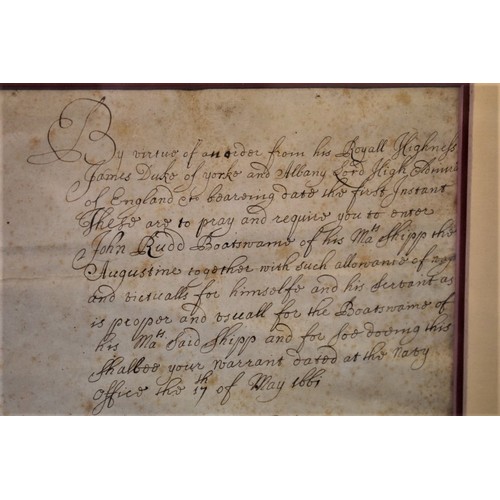 By virtue of an order from his Royall Highness
James Duke of yorke and Albany Lord High Admira
of England &c bearing date the first Instant
These are to pray and require you to enter
John Rudd Boatswaine of his Ma^ts Shipp the
Augustine together with such allowance of
and victualls for himselfe and his Servant as
is proper and usuall for the Boatswaine of
his Ma^ts said Shipp and for soe doeing this
shalbee your warrant dated at the Navy
office the 17^th of May 1661